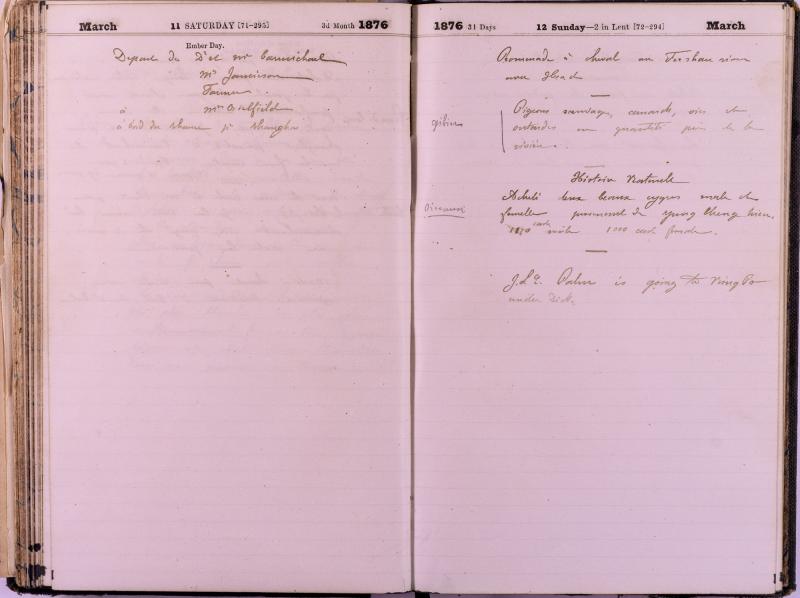 March 11 SATURDAY [71-295] 3d Month 1876
Ember Day.
Depart du Dr et Mr Carmichael
Mr Jamieson
Farmer
à Mr Oldfield
à bord du pr Shanghai
1876 31 Days 12 Sunday—2 in Lent [72-294] March
Promenade à cheval au
avec
gibier
Pigeons sauvages, canards, oies et
outardes en quantité près de la
rivière.
Histoire Naturelle
Oiseaux
Acheté deux beaux cygnes male et
femelle provenant de Yung Cheng hien.
1110 cash male 1000 cash femelle.
J. L. E. Palm is going to Ningpo
under Dick